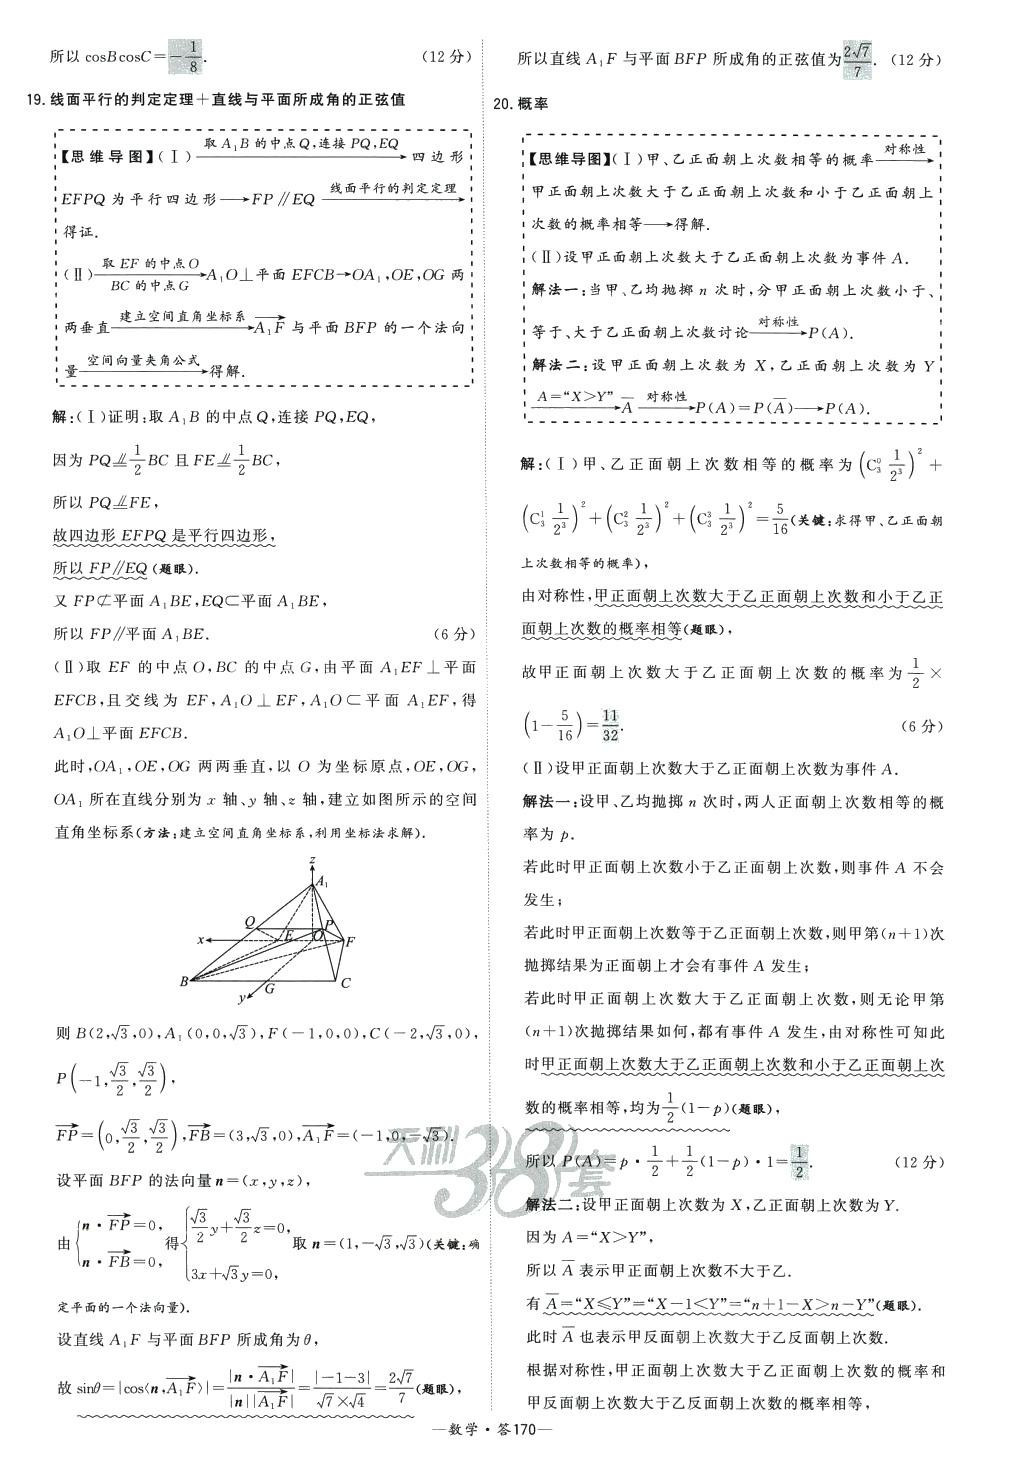 所以 cosBcosC=-1/8. (12 分)
19. 线面平行的判定定理+直线与平面所成角的正弦值
【思维导图】(Ⅰ) 取 A₁B 的中点 Q,连接 PQ,EQ → 四边形
EFPQ 为平行四边形 → FP∥EQ 线面平行的判定定理 →
得证.
(Ⅱ) 取 EF 的中点 O BC 的中点 G → A₁O⊥平面 EFCB→OA₁,OE,OG 两
两垂直 建立空间直角坐标系 → A₁F 与平面 BFP 的一个法向
量 空间向量夹角公式 → 得解.
解:(Ⅰ)证明:取 A₁B 的中点 Q,连接 PQ,EQ,
因为 PQ⫽1/2BC 且 FE⫽1/2BC,
所以 PQ⫽FE,
故四边形 EFPQ 是平行四边形,
所以 FP∥EQ(题眼).
又 FP⊄平面 A₁BE,EQ⊂平面 A₁BE,
所以 FP∥平面 A₁BE. (6 分)
(Ⅱ)取 EF 的中点 O,BC 的中点 G,由平面 A₁EF⊥平面
EFCB,且交线为 EF,A₁O⊥EF,A₁O⊂平面 A₁EF,得
A₁O⊥平面 EFCB.
此时,OA₁,OE,OG 两两垂直,以 O 为坐标原点,OE,OG,
OA₁ 所在直线分别为 x 轴、y 轴、z 轴,建立如图所示的空间
直角坐标系(方法:建立空间直角坐标系,利用坐标法求解).
z
A₁
Q P
x E O F
B G C
y
则 B(2,√3,0),A₁(0,0,√3),F(-1,0,0),C(-2,√3,0),
P(-1,√3/2,√3/2),
FP=(0,√3/2,√3/2),FB=(3,√3,0),A₁F=(-1,0,-√3).
设平面 BFP 的法向量 n=(x,y,z),
由{n·FP=0, n·FB=0, 得{√3/2y+√3/2z=0, 3x+√3y=0, 取 n=(1,-√3,√3)(关键:确
定平面的一个法向量).
设直线 A₁F 与平面 BFP 所成角为 θ,
故 sinθ=|cos⟨n,A₁F⟩|=|n·A₁F|/|n||A₁F|=|-1-3|/√7×√4=2√7/7(题眼),
所以直线 A₁F 与平面 BFP 所成角的正弦值为2√7/7. (12 分)
20. 概率
【思维导图】(Ⅰ)甲、乙正面朝上次数相等的概率 对称性 →
甲正面朝上次数大于乙正面朝上次数和小于乙正面朝上
次数的概率相等 → 得解.
(Ⅱ)设甲正面朝上次数大于乙正面朝上次数为事件 A.
解法一:当甲、乙均抛掷 n 次时,分甲正面朝上次数小于、
等于、大于乙正面朝上次数讨论 对称性 → P(A).
解法二:设甲正面朝上次数为 X,乙正面朝上次数为 Y
A=“X>Y” → A̅ 对称性 → P(A)=P(A̅) → P(A).
解:(Ⅰ)甲、乙正面朝上次数相等的概率为(C₃⁰ 1/2³)²+
(C₃¹ 1/2³)²+(C₃² 1/2³)²+(C₃³ 1/2³)²=5/16(关键:求得甲、乙正面朝
上次数相等的概率),
由对称性,甲正面朝上次数大于乙正面朝上次数和小于乙正
面朝上次数的概率相等(题眼),
故甲正面朝上次数大于乙正面朝上次数的概率为1/2×
(1-5/16)=11/32. (6 分)
(Ⅱ)设甲正面朝上次数大于乙正面朝上次数为事件 A.
解法一:设甲、乙均抛掷 n 次时,两人正面朝上次数相等的概
率为 p.
若此时甲正面朝上次数小于乙正面朝上次数,则事件 A 不会
发生;
若此时甲正面朝上次数等于乙正面朝上次数,则甲第(n+1)次
抛掷结果为正面朝上才会有事件 A 发生;
若此时甲正面朝上次数大于乙正面朝上次数,则无论甲第
(n+1)次抛掷结果如何,都有事件 A 发生,由对称性可知此
时甲正面朝上次数大于乙正面朝上次数和小于乙正面朝上次
数的概率相等,均为1/2(1-p)(题眼),
所以 P(A)=p·1/2+1/2(1-p)·1=1/2. (12 分)
解法二:设甲正面朝上次数为 X,乙正面朝上次数为 Y.
因为 A=“X>Y”,
所以 A̅ 表示甲正面朝上次数不大于乙.
有 A̅=“X≤Y”=“X-1<Y”=“n+1-X>n-Y”(题眼).
此时 A̅ 也表示甲反面朝上次数大于乙反面朝上次数.
根据对称性,甲正面朝上次数大于乙正面朝上次数的概率和
甲反面朝上次数大于乙反面朝上次数的概率相等,
天利38套
—数学·答170—